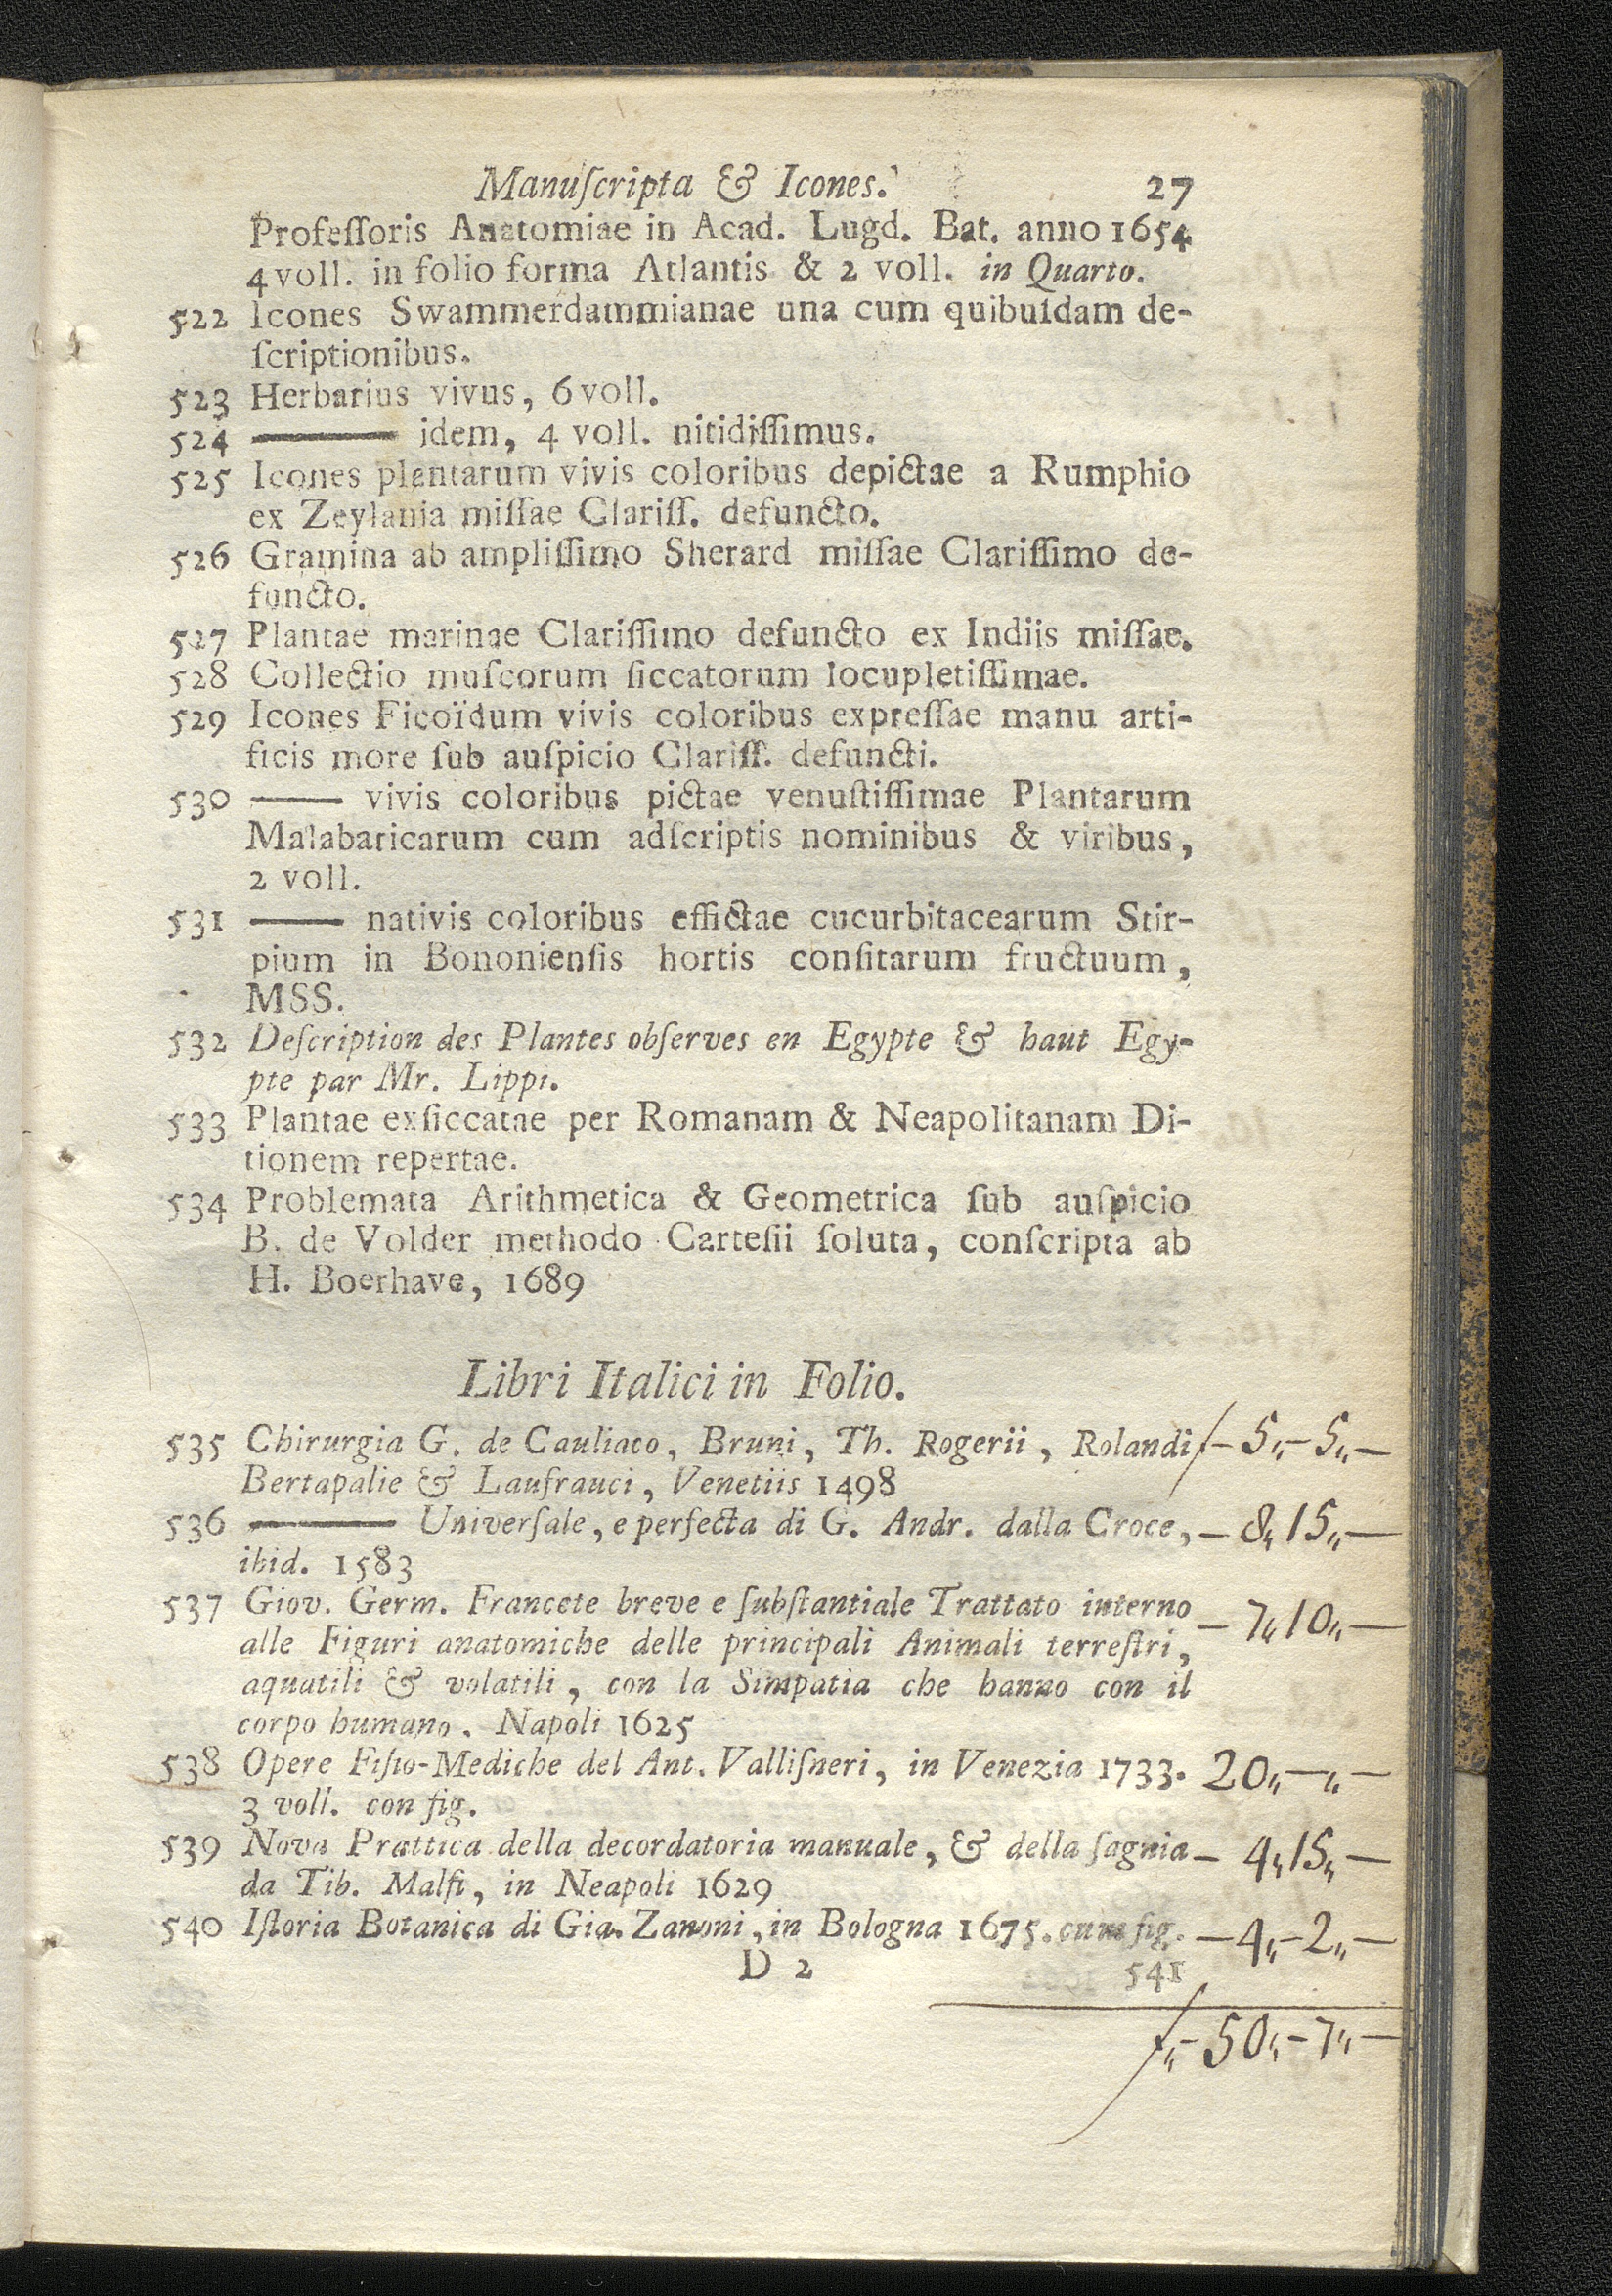 Manuſcripta & Icones. 27
Profeſſoris Anatomiae in Acad. Lugd. Bat. anno 1654
4 voll. in folio forma Atlantis & 2 voll. in Quarto.
522 Icones Swammerdammianae una cum quibuſdam de-
ſcriptionibus.
523 Herbarius vivus, 6 voll.
524 ——— idem, 4 voll. nitidiſſimus.
525 Icones plantarum vivis coloribus depictae a Rumphio
ex Zeylania miſſae Clariſſ. defuncto.
526 Gramina ab ampliſſimo Sherard miſſae Clariſſimo de-
functo.
527 Plantae marinae Clariſſimo defuncto ex Indiis miſſae.
528 Collectio muſcorum ſiccatorum locupletiſſimae.
529 Icones Ficoïdum vivis coloribus expreſſae manu arti-
ficis more ſub auſpicio Clariſſ. defuncti.
530 —— vivis coloribus pictae venuſtiſſimae Plantarum
Malabaricarum cum adſcriptis nominibus & viribus,
2 voll.
531 —— nativis coloribus effictae cucurbitacearum Stir-
pium in Bononienſis hortis conſitarum fructuum,
MSS.
532 Deſcription des Plantes obſerves en Egypte & haut Egy-
pte par Mr. Lippi.
533 Plantae exſiccatae per Romanam & Neapolitanam Di-
tionem repertae.
534 Problemata Arithmetica & Geometrica ſub auſpicio
B. de Volder methodo Carteſii ſoluta, conſcripta ab
H. Boerhave, 1689
Libri Italici in Folio.
535 Chirurgia G. de Cauliaco, Bruni, Th. Rogerii, Rolandi ƒ– 5„– 5„—
Bertapalie & Laufrauci, Venetiis 1498
536 ——— Univerſale, e perfecta di G. Andr. dalla Croce, – 8„ 15„—
ibid. 1583
537 Giov. Germ. Francete breve e ſubſtantiale Trattato interno – 7„ 10„—
alle Figuri anatomiche delle principali Animali terreſtri,
aquatili & volatili, con la Simpatia che hanno con il
corpo humano. Napoli 1625
538 Opere Fiſio-Mediche del Ant. Valliſneri, in Venezia 1733. 20„—„—
3 voll. con fig.
539 Nova Prattica della decordatoria manuale, & della ſagnia – 4„ 15„—
da Tib. Malfi, in Neapoli 1629
540 Iſtoria Botanica di Gia. Zanoni, in Bologna 1675. cum fig. – 4„– 2„—
D 2 541
ƒ„– 50„– 7„—